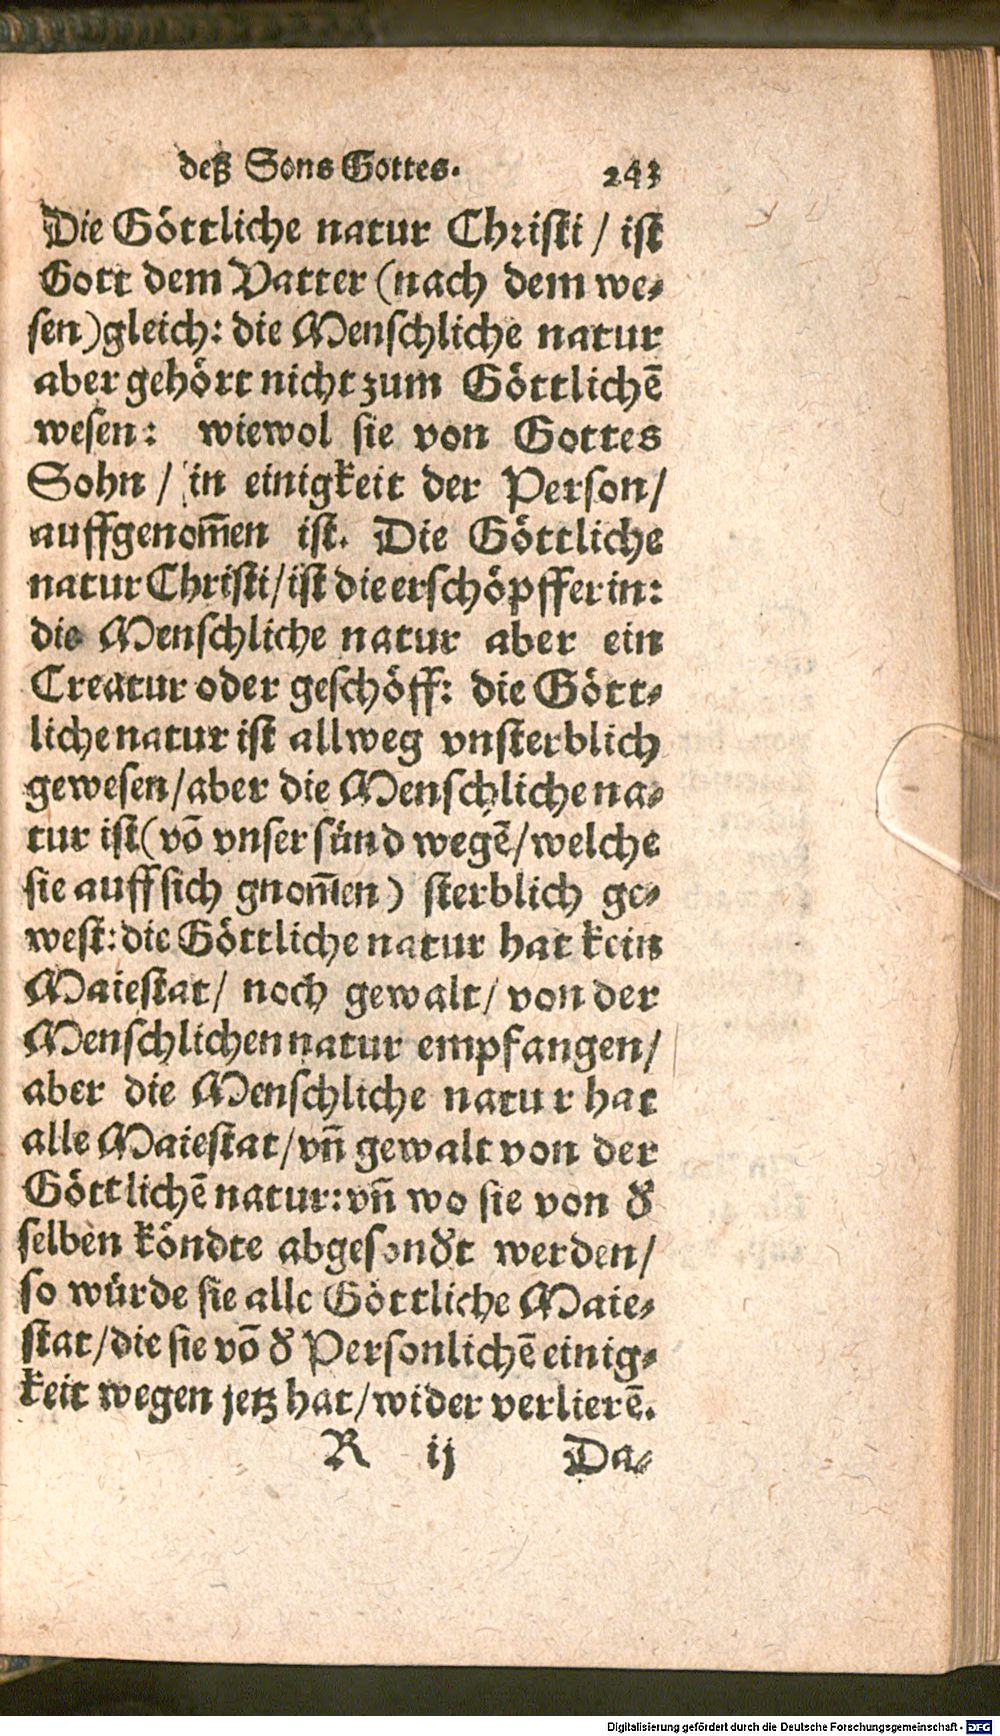 deß Sons Gottes. 243
Die Göttliche natur Christi / ist
Gott dem Vatter (nach dem we-
sen) gleich: die Menschliche natur
aber gehört nicht zum Göttlichē
wesen: wiewol sie von Gottes
Sohn / in einigkeit der Person/
auffgenom̄en ist. Die Göttliche
natur Christi/ist die erschöpfferin:
die Menschliche natur aber ein
Creatur oder geschöff: die Gött-
liche natur ist allweg vnsterblich
gewesen/aber die Menschliche na-
tur ist (vō vnser sünd wegē/welche
sie auff sich gnom̄en) sterblich ge-
west: die Göttliche natur hat kein
Maiestat/ noch gewalt/ von der
Menschlichen natur empfangen/
aber die Menschliche natur hat
alle Maiestat/vn̄ gewalt von der
Göttlichē natur: vn̄ wo sie von d'
selben köndte abgesond't werden/
so würde sie alle Göttliche Maie-
stat/die sie vō d' Personlichē einig-
keit wegen jetz hat/wider verlierē.
R ij Da-
Digitalisierung gefördert durch die Deutsche Forschungsgemeinschaft - DFG